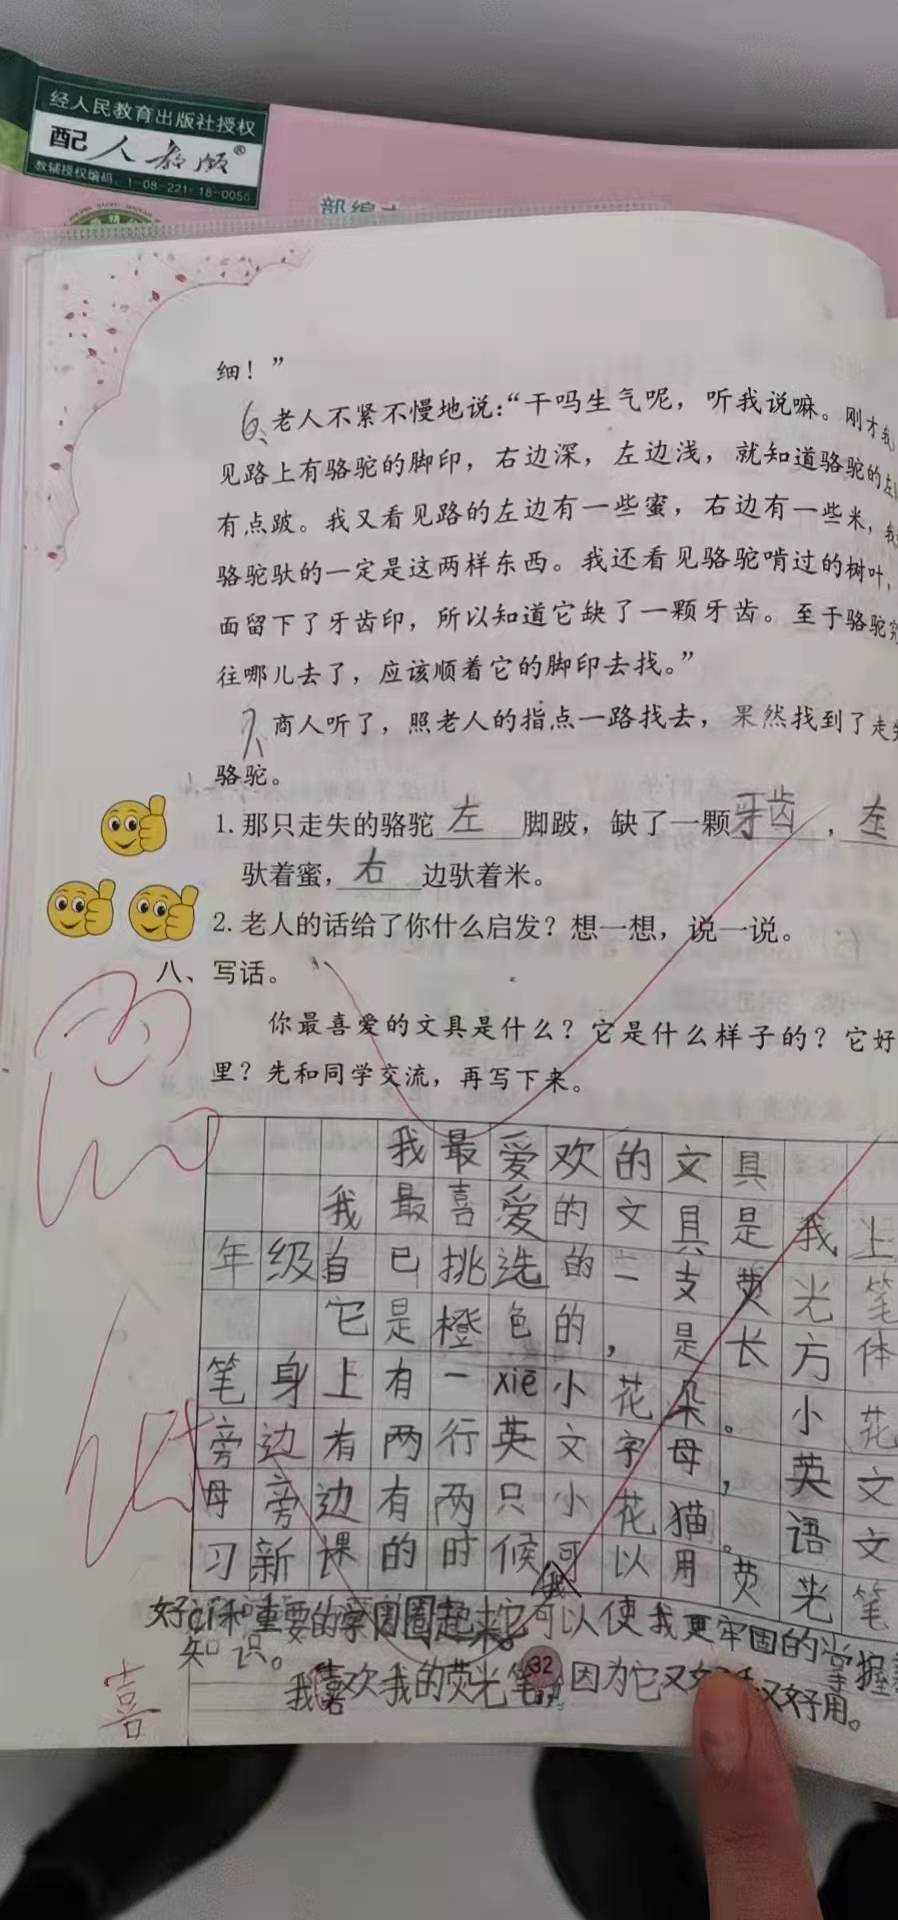 经人民教育出版社授权
配人教版®
教辅授权编码：1-08-221-18-0056
部编
细！”
6、老人不紧不慢地说：“干吗生气呢，听我说嘛。刚才我
见路上有骆驼的脚印，右边深，左边浅，就知道骆驼的左
有点跛。我又看见路的左边有一些蜜，右边有一些米，我
骆驼驮的一定是这两样东西。我还看见骆驼啃过的树叶，
面留下了牙齿印，所以知道它缺了一颗牙齿。至于骆驼究
往哪儿去了，应该顺着它的脚印去找。”
7、商人听了，照老人的指点一路找去，果然找到了走失
骆驼。
1. 那只走失的骆驼左脚跛，缺了一颗牙齿，左
驮着蜜，右边驮着米。
2. 老人的话给了你什么启发？想一想，说一说。
八、写话。
你最喜爱的文具是什么？它是什么样子的？它好
里？先和同学交流，再写下来。
我最爱欢的文具
我最喜爱的文具是我上
年级自已挑选的一支荧光笔
它是橙色的，是长方体
笔身上有一xiē小花朵。小花
旁边有两行英文字母，英文
母旁边有两只小花猫。语文
习新课的时候我可以用荧光笔
好cí和重要的字圈起来它可以使我更牢固的掌握
知识。
我喜欢我的荧光笔，因为它又好 又好用。
喜
32